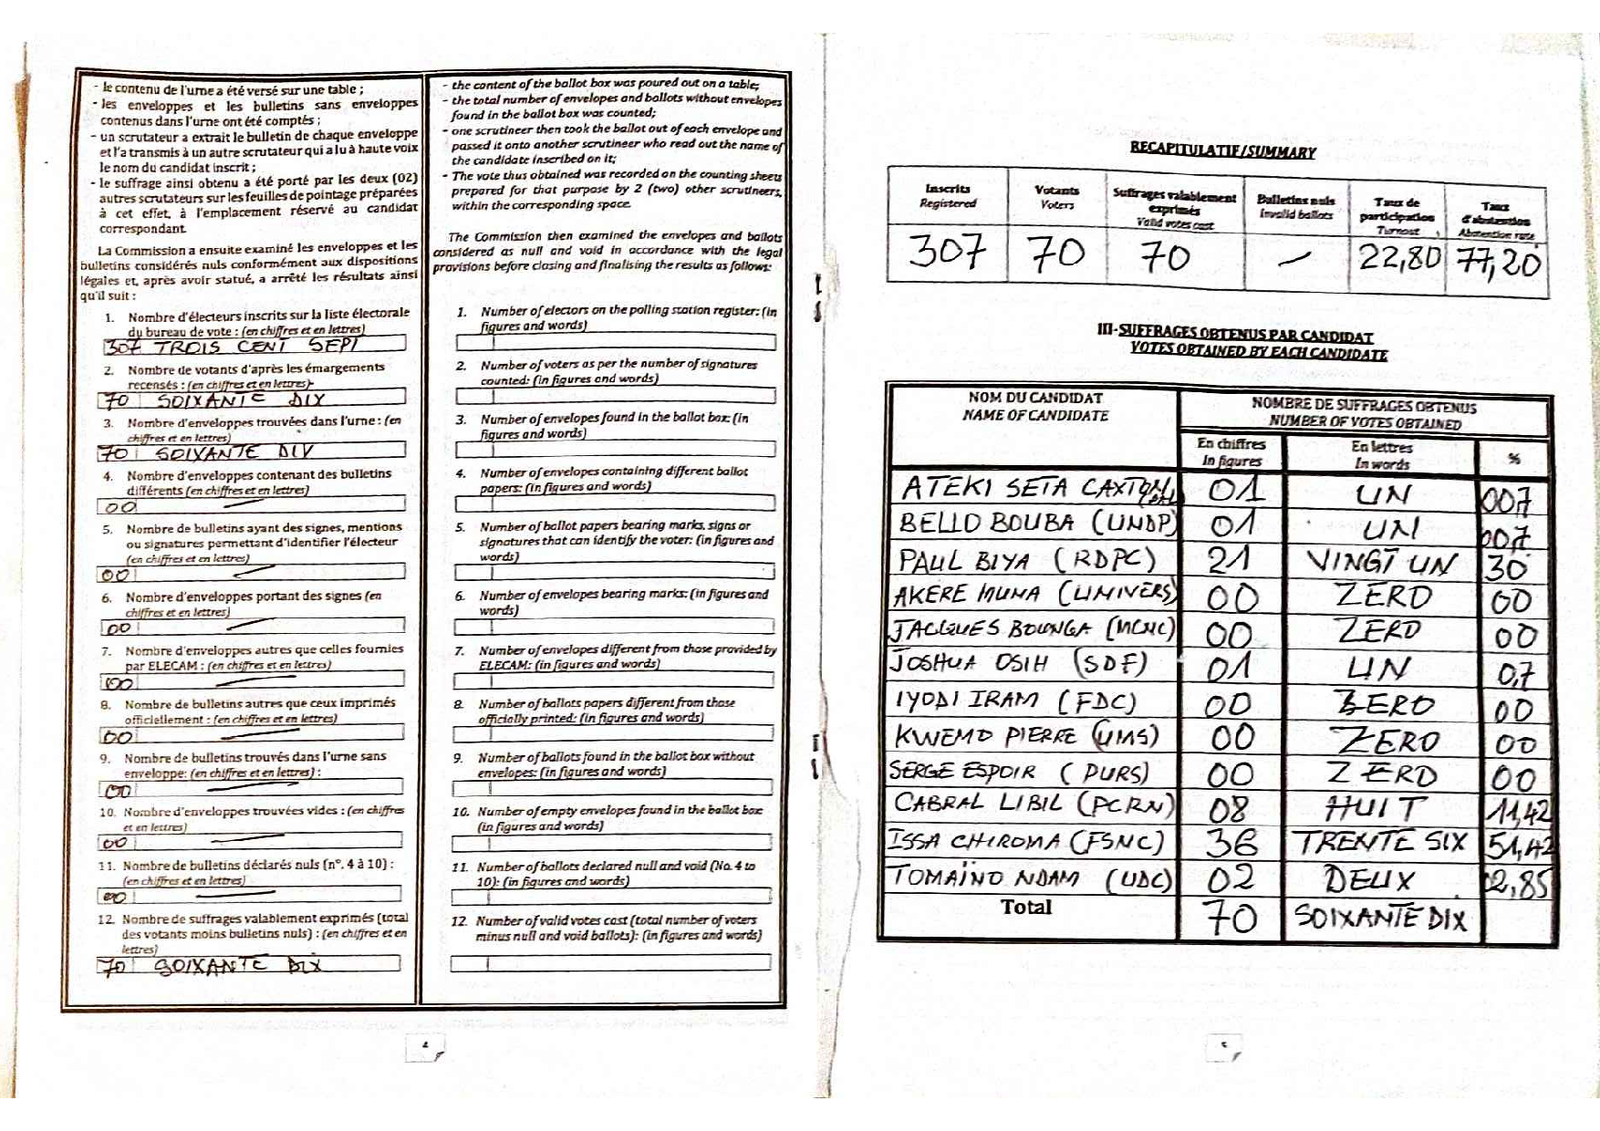 - le contenu de l'urne a été versé sur une table ;
- les enveloppes et les bulletins sans enveloppes
contenus dans l'urne ont été comptés ;
- un scrutateur a extrait le bulletin de chaque enveloppe
et l'a transmis à un autre scrutateur qui a lu à haute voix
le nom du candidat inscrit ;
- le suffrage ainsi obtenu a été porté par les deux (02)
autres scrutateurs sur les feuilles de pointage préparées
à cet effet, à l'emplacement réservé au candidat
correspondant.
La Commission a ensuite examiné les enveloppes et les
bulletins considérés nuls conformément aux dispositions
légales et, après avoir statué, a arrêté les résultats ainsi
qu'il suit :
1. Nombre d'électeurs inscrits sur la liste électorale
du bureau de vote : (en chiffres et en lettres)
307 TROIS CENT SEPT
2. Nombre de votants d'après les émargements
recensés : (en chiffres et en lettres)
70 SOIXANTE DIX
3. Nombre d'enveloppes trouvées dans l'urne : (en
chiffres et en lettres)
70 SOIXANTE DIX
4. Nombre d'enveloppes contenant des bulletins
différents (en chiffres et en lettres)
00
5. Nombre de bulletins ayant des signes, mentions
ou signatures permettant d'identifier l'électeur
(en chiffres et en lettres)
00
6. Nombre d'enveloppes portant des signes (en
chiffres et en lettres)
00
7. Nombre d'enveloppes autres que celles fournies
par ELECAM : (en chiffres et en lettres)
00
8. Nombre de bulletins autres que ceux imprimés
officiellement : (en chiffres et en lettres)
00
9. Nombre de bulletins trouvés dans l'urne sans
enveloppe: (en chiffres et en lettres) :
00
10. Nombre d'enveloppes trouvées vides : (en chiffres
et en lettres)
00
11. Nombre de bulletins déclarés nuls (n°. 4 à 10) :
(en chiffres et en lettres)
00
12. Nombre de suffrages valablement exprimés (total
des votants moins bulletins nuls) : (en chiffres et en
lettres)
70 SOIXANTE DIX
- the content of the ballot box was poured out on a table;
- the total number of envelopes and ballots without envelopes
found in the ballot box was counted;
- one scrutineer then took the ballot out of each envelope and
passed it onto another scrutineer who read out the name of
the candidate inscribed on it;
- The vote thus obtained was recorded on the counting sheets
prepared for that purpose by 2 (two) other scrutineers,
within the corresponding space.
The Commission then examined the envelopes and ballots
considered as null and void in accordance with the legal
provisions before closing and finalising the results as follows:
1. Number of electors on the polling station register: (in
figures and words)
2. Number of voters as per the number of signatures
counted: (in figures and words)
3. Number of envelopes found in the ballot box: (in
figures and words)
4. Number of envelopes containing different ballot
papers: (in figures and words)
5. Number of ballot papers bearing marks, signs or
signatures that can identify the voter: (in figures and
words)
6. Number of envelopes bearing marks: (in figures and
words)
7. Number of envelopes different from those provided by
ELECAM: (in figures and words)
8. Number of ballots papers different from those
officially printed: (in figures and words)
9. Number of ballots found in the ballot box without
envelopes: (in figures and words)
10. Number of empty envelopes found in the ballot box:
(in figures and words)
11. Number of ballots declared null and void (No. 4 to
10): (in figures and words)
12. Number of valid votes cast (total number of voters
minus null and void ballots): (in figures and words)
4
RECAPITULATIF/SUMMARY
Inscrits Registered Votants Voters Suffrages valablement exprimés Valid votes cast Bulletins nuls Invalid ballots Taux de participation Turnout Taux d'abstention Abstention rate
307 70 70 - 22,80 77,20
III- SUFFRAGES OBTENUS PAR CANDIDAT
VOTES OBTAINED BY EACH CANDIDATE
NOM DU CANDIDAT NAME OF CANDIDATE
NOMBRE DE SUFFRAGES OBTENUS
NUMBER OF VOTES OBTAINED
En chiffres In figures En lettres In words %
ATEKI SETA CAXTON 01 UN 00,7
BELLO BOUBA (UNDP) 01 UN 00,7
PAUL BIYA (RDPC) 21 VINGT UN 30
AKERE MUNA (UNIVERS) 00 ZERO 00
JACQUES BOUNGA (MCNC) 00 ZERO 00
JOSHUA OSIH (SDF) 01 UN 0,7
IYODI IRAM (FDC) 00 ZERO 00
KWEMO PIERRE (UMS) 00 ZERO 00
SERGE ESPOIR (PURS) 00 ZERO 00
CABRAL LIBIL (PCRN) 08 HUIT 11,42
ISSA CHIROMA (FSNC) 36 TRENTE SIX 51,42
TOMAÏNO NDAM (UDC) 02 DEUX 02,85
Total 70 SOIXANTE DIX
5